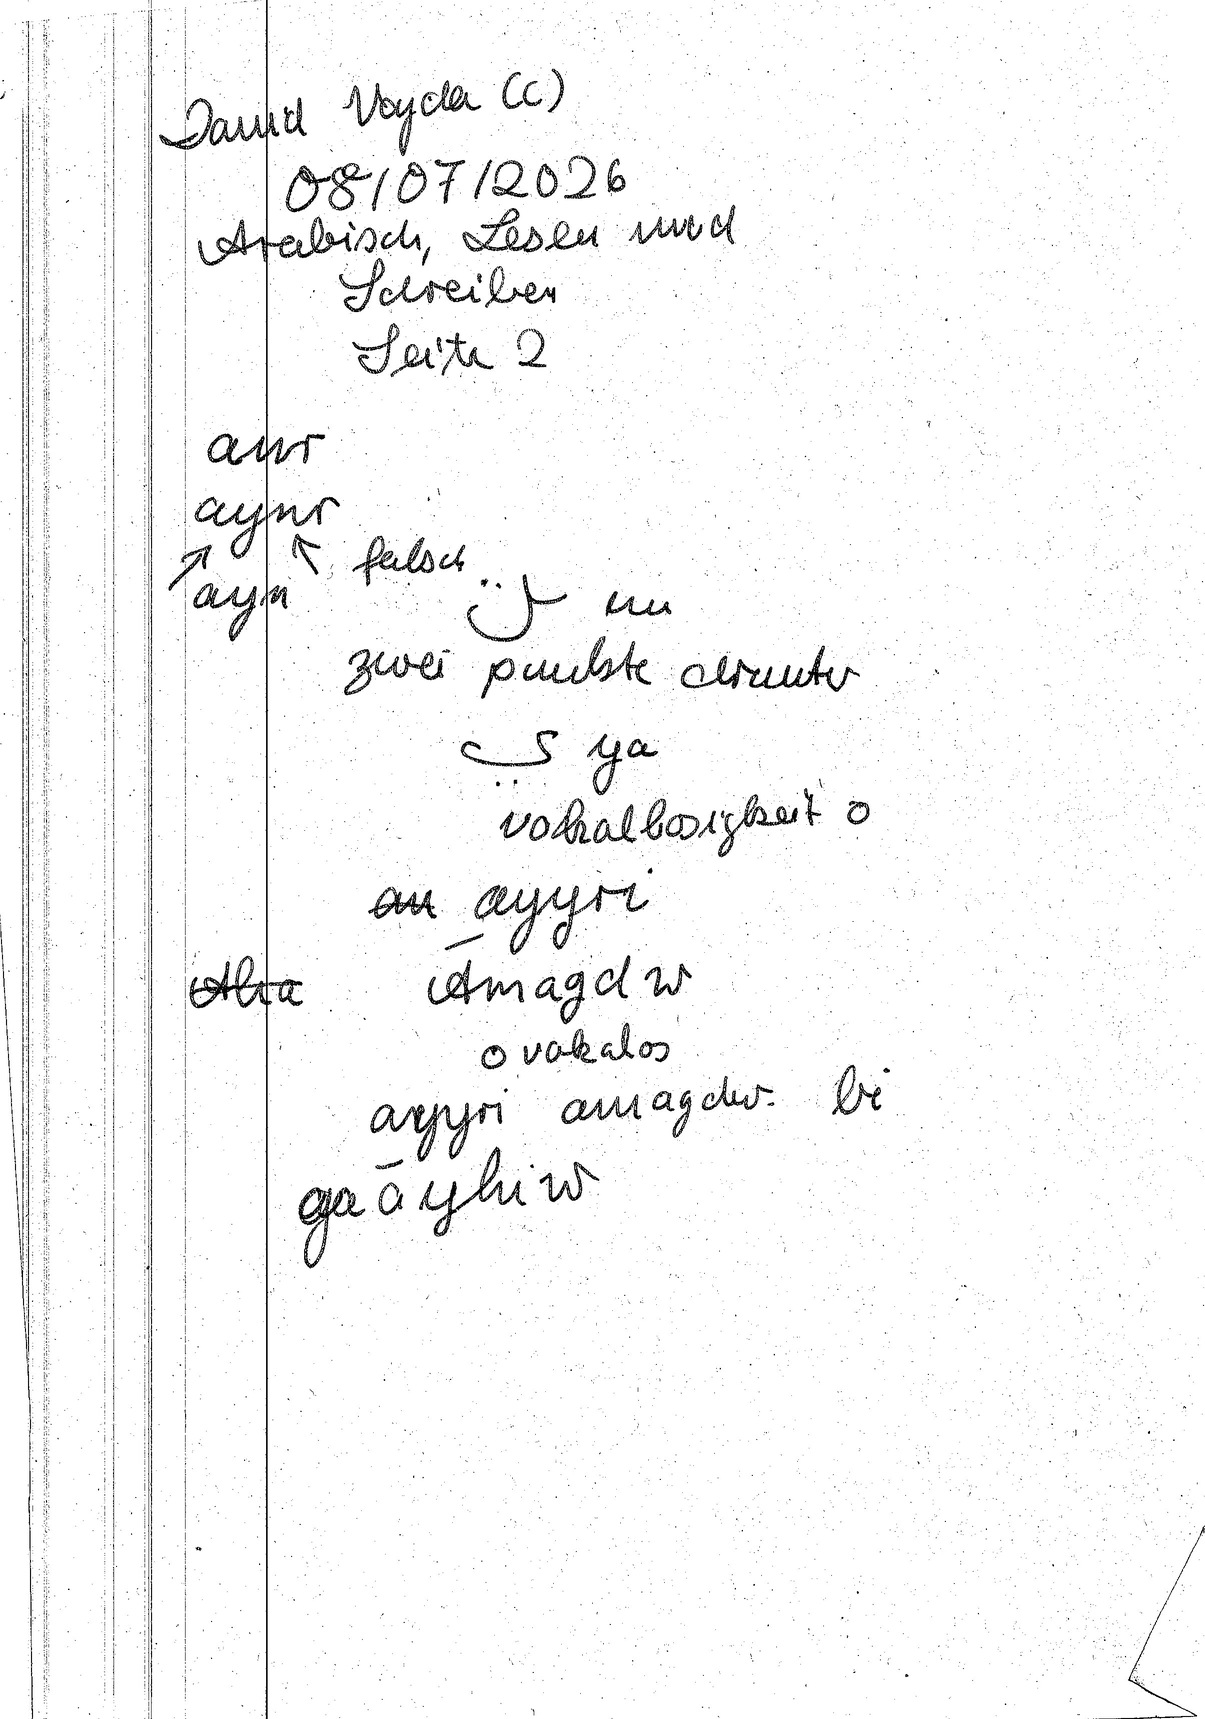 David Vajda (C)
08/07/2026
Arabisch, Lesen und
Schreiben
Seite 2
anr
aynr
falsch
ayn
nu
zwei punkte drunter
ي ya
vokallosigkeit o
an ayyri
Alra Āmagdw
o vokalos
ayyri amagdw. bi
ga āyhiw